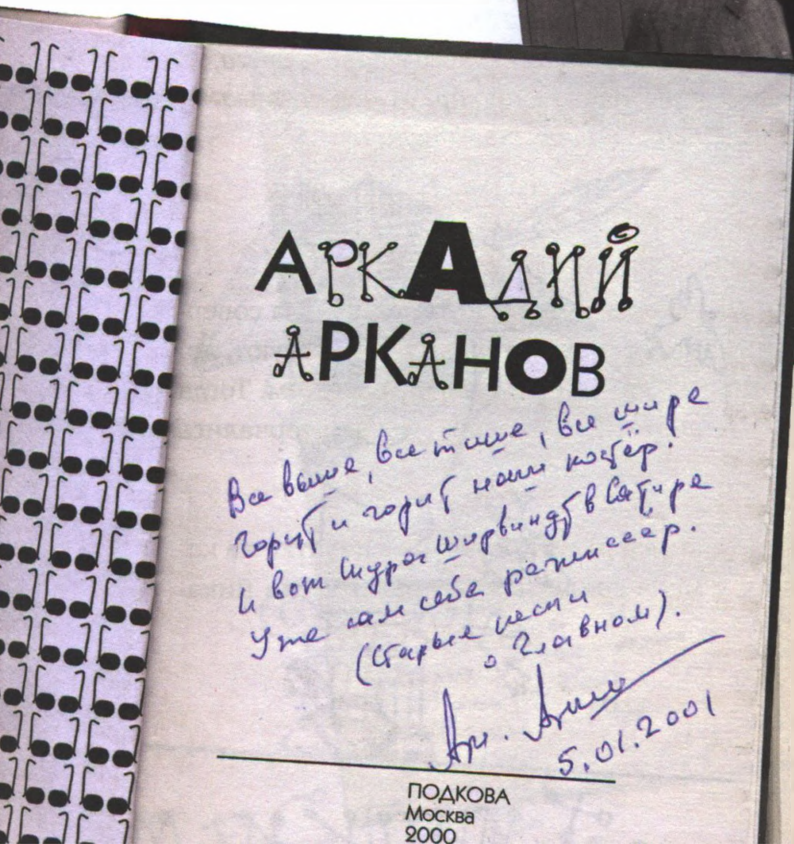 АРКАДИЙ
АРКАНОВ
Все выше, все тише, все шире
Горит и горит наш костёр.
И вот Шура Ширвиндт в Сатире
Уже сам себе режиссёр.
(Старые песни
о Главном).
Арк. Арка
5.01.2001
ПОДКОВА
Москва
2000